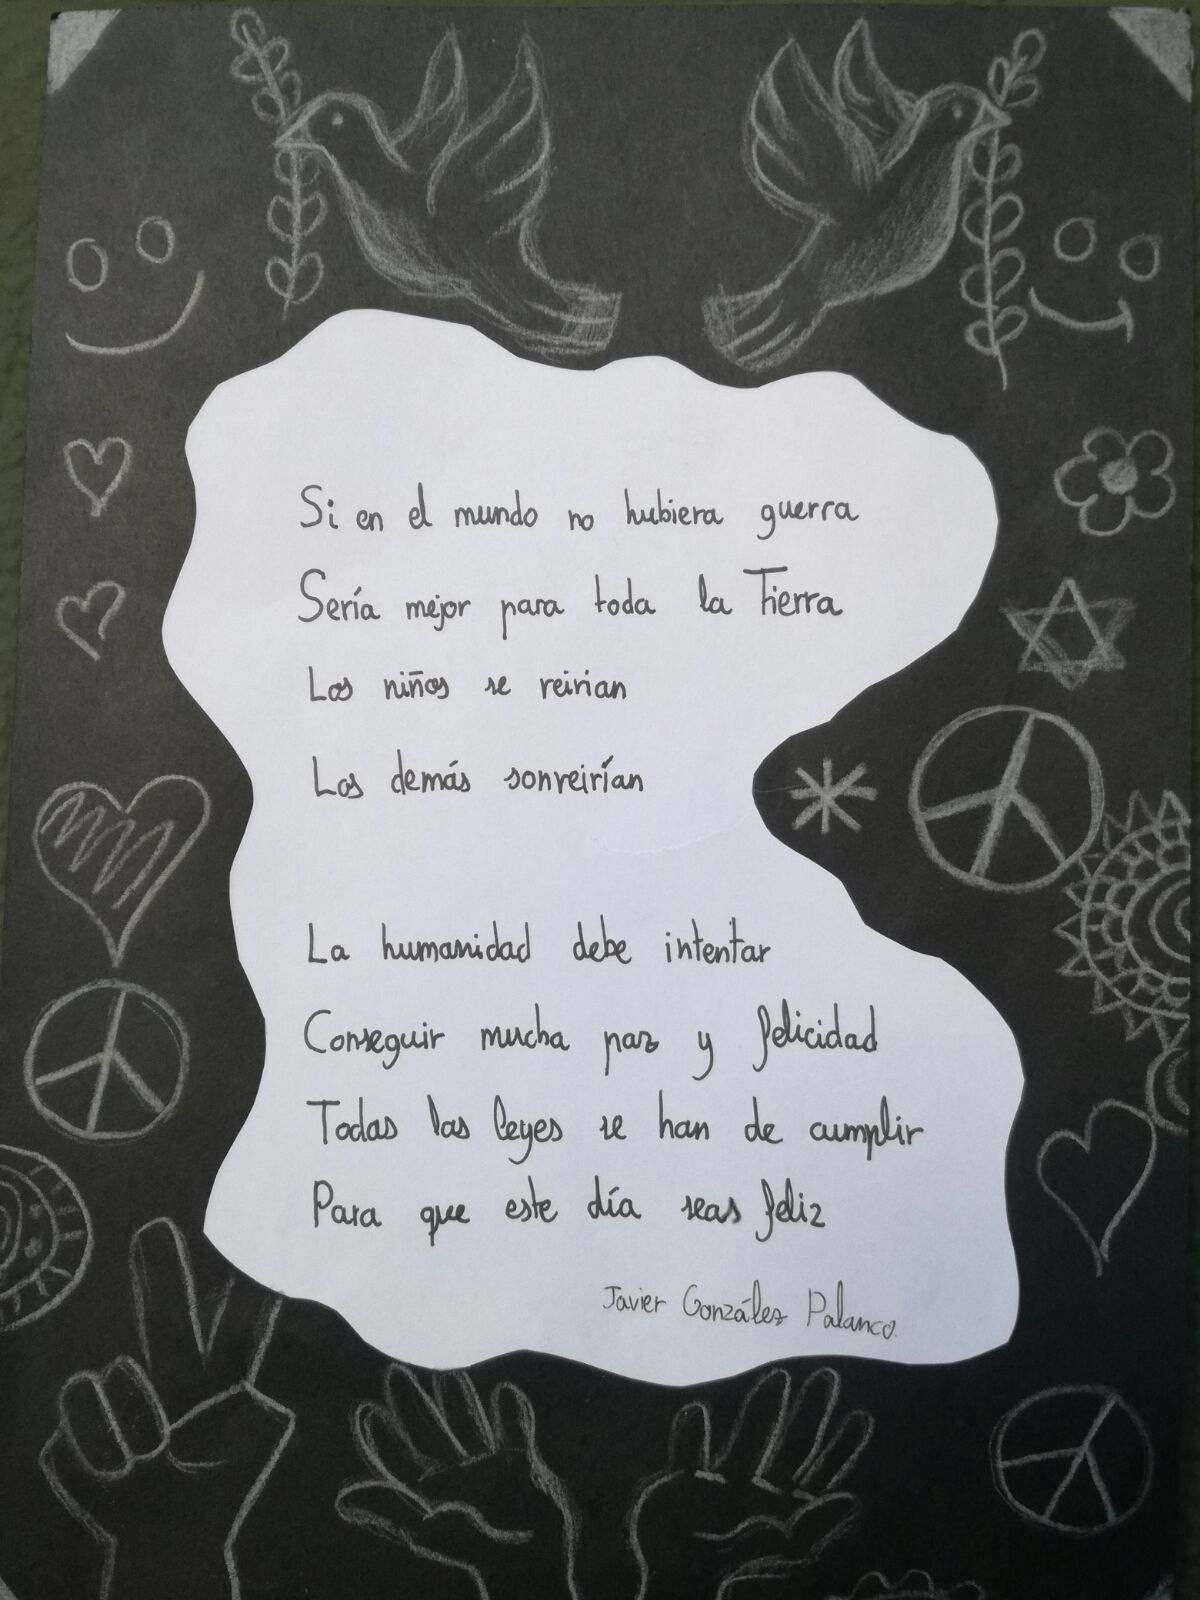 Si en el mundo no hubiera guerra
Sería mejor para toda la Tierra
Los niños se reirían
Los demás sonreirían
La humanidad debe intentar
Conseguir mucha paz y felicidad
Todas las leyes se han de cumplir
Para que este día seas feliz
Javier González Palanco.